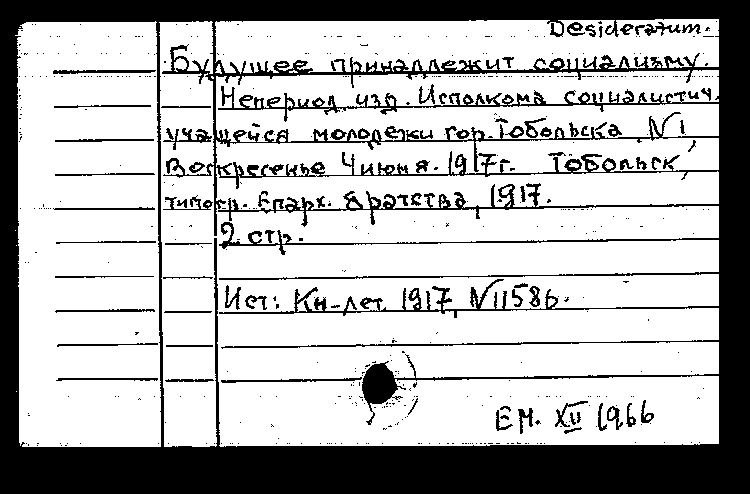 Desideratum.
Будущее принадлежит социализму.
Непериод. изд. Исполкома социалистич.
учащейся молодежи гор. Тобольска, №1,
Воскресенье 4 июня. 1917г. Тобольск,
типогр. Епарх. братства, 1917.
2 стр.
Ист: Кн-лет. 1917, №11586.
ЕМ. XII 1966